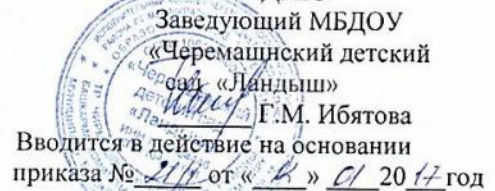 Заведующий МБДОУ
«Черемашнский детский
сад «Ландыш»
Г.М. Ибятова
Вводится в действие на основании
приказа № от « » 01 2017 год